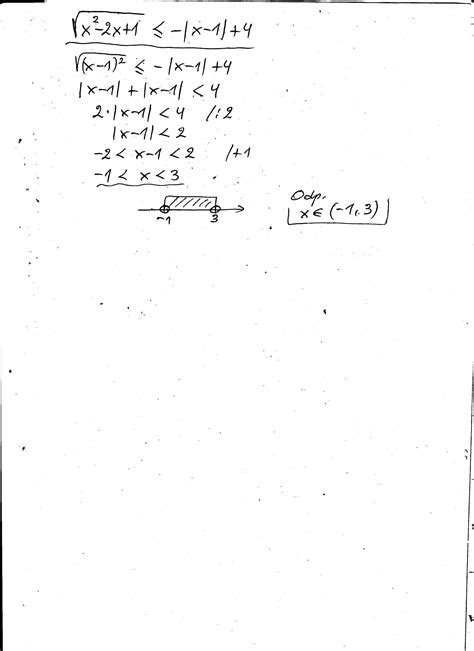 √x²-2x+1 ≤ -|x-1|+4
√(x-1)² ≤ -|x-1|+4
|x-1|+|x-1| < 4
2·|x-1| < 4 /:2
|x-1| < 2
-2 < x-1 < 2 /+1
-1 < x < 3
-1 3
Odp.
x ∈ (-1, 3)